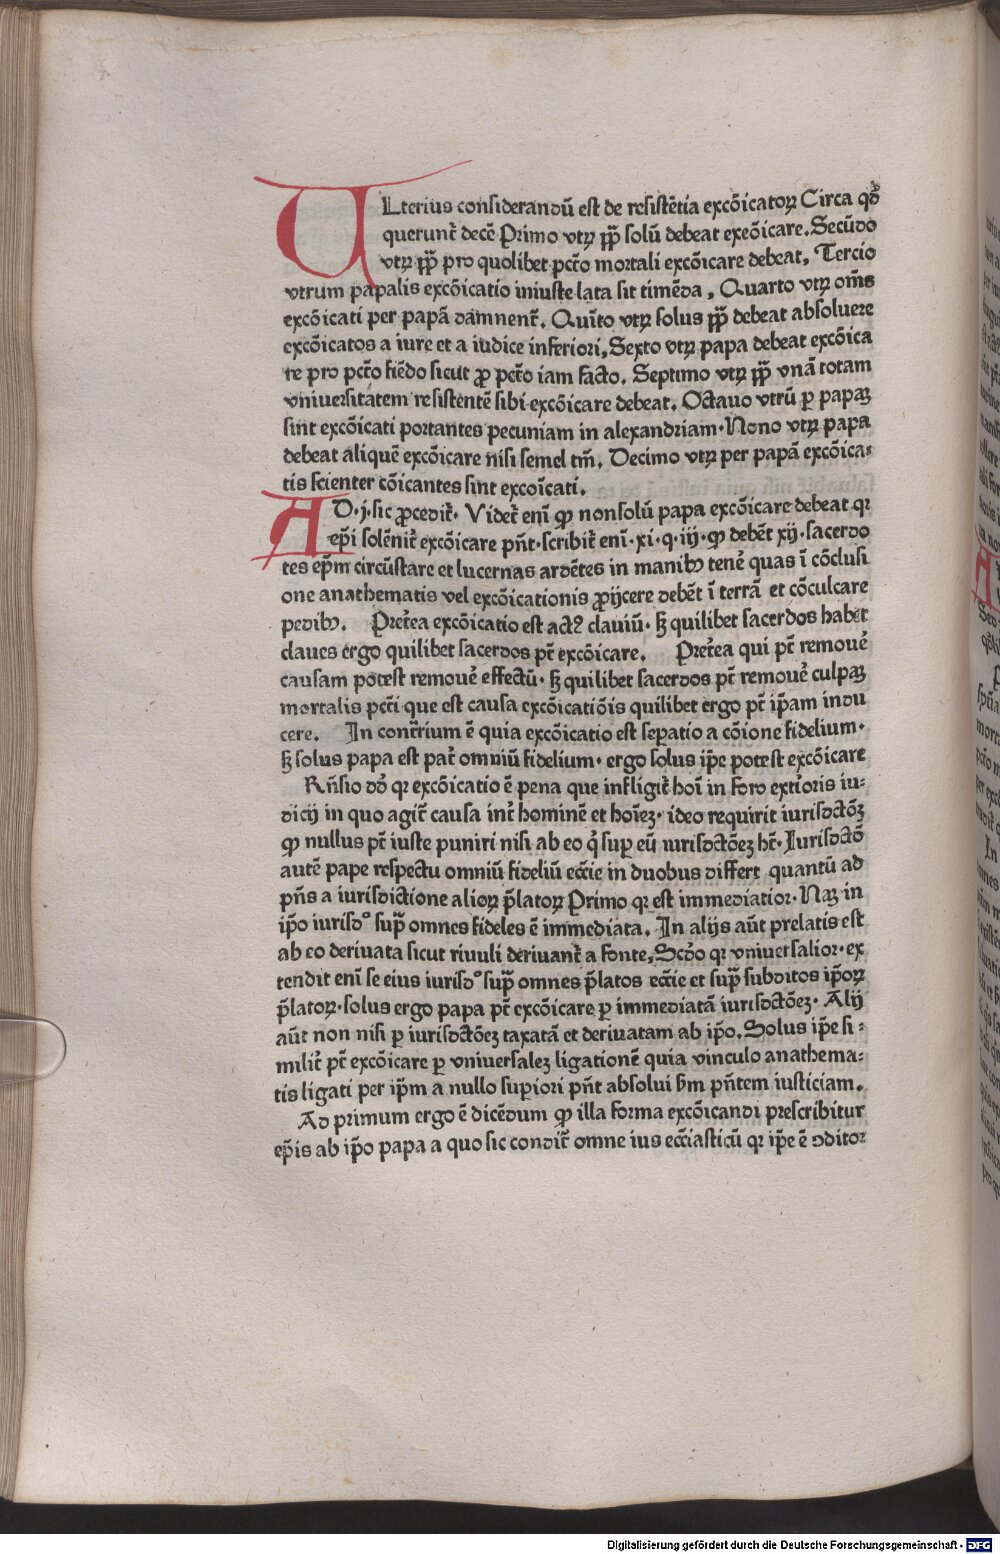 ULterius considerandū est de resistētia excōicatoꝝ Circa qđ
querunt᷑ decē Primo vtꝝ pp̄ solū debeat exeōicare. Secūdo
vtꝝ pp̄ pro quolibet pctō mortali excōicare debeat, Tercio
vtrum papalis excōicatio iniuste lata sit timēda, Quarto vtꝝ om̄s
excōicati per papā damnent᷑. Quīto vtꝝ solus pp̄ debeat absoluere
excōicatos a iure et a iudice inferiori, Sexto vtꝝ papa debeat excōica
re pro pctō fiēdo sicut ꝓ pctō iam facto. Septimo vtꝝ pp̄ vnā totam
vniuersitatem resistentē sibi excōicare debeat. Octauo vtrū ꝑ papaꝫ
sint excōicati portantes pecuniam in alexandriam· Nono vtꝝ papa
debeat aliquē excōicare nisi semel tm̄. Decimo vtꝝ per papā excōica⸗
tis scienter cōicantes sint excoīcati.
AD·j·sic ꝓcedit᷑· Videt᷑ enī ꝙ nonsolū papa excōicare debeat qꝛ
ep̄i solēnit᷑ excōicare pn̄t·scribit᷑ enī·xi·q·iij·ꝙ debēt xij·sacerdo
tes ep̄m circūstare et lucernas ardētes in manibꝰ tene᷑ quas ī cōclusi
one anathematis vel excōicationis ꝓijcere debēt ī terrā et cōculcare
pedibꝰ. Pret᷑ea excōicatio est actꝰ clauiū· sꝫ quilibet sacerdos habet
claues ergo quilibet sacerdos pt᷑ excōicare. Pret᷑ea qui pt᷑ remoue᷑
causam potest remoue᷑ effectū· sꝫ quilibet sacerdos pt᷑ remoue᷑ culpaꝫ
mortalis pctī que est causa excōicatiōis quilibet ergo pt᷑ ip̄am indu
cere. In cont᷑rium ē quia excōicatio est sepatio a cōione fidelium·
sꝫ solus papa est pat᷑ omniū fidelium· ergo solus ip̄e potest excōicare
Rn̄sio dd̄ qꝛ excōicatio ē pena que infligit᷑ hoī in foro ext᷑ioris iu⸗
dicij in quo agit᷑ causa int᷑ hominē et hoīeꝫ· ideo requirit iurisdctōꝫ
ꝙ nullus pt᷑ iuste puniri nisi ab eo q᷑ suꝑ eū iurisdctōeꝫ ht᷑· Iurisdctō
autē pape respectu omniū fideliū eccīe in duobus differt quantū ad
pn̄s a iurisdictione alioꝝ p̄latoꝝ Primo qꝛ est immediatior· Naꝫ in
ip̄o iurisdꝰ sup̄ omnes fideles ē immediata. In alijs aūt prelatis est
ab eo deriuata sicut riuuli deriuant᷑ a fonte, Scdō qꝛ vniuersalior· ex
tendit enī se eius iurisdꝰ sup̄ omnes p̄latos eccīe et sup̄ subditos ip̄oꝝ
p̄latoꝝ·solus ergo papa pt᷑ excōicare ꝑ immediatā iurisdctōeꝫ· Alij
aūt non nisi ꝑ iurisdctōeꝫ taxatā et deriuatam ab ip̄o. Solus ip̄e si⸗
milit᷑ pt᷑ excōicare ꝑ vniuersaleꝫ ligationē quia vinculo anathema⸗
tis ligati per ip̄m a nullo suꝑiori pn̄t absolui ẜm pn̄tem iusticiam.
Ad primum ergo ē dicēdum ꝙ illa forma excōicandi prescribitur
ep̄is ab ip̄o papa a quo sic condit᷑ omne ius eccīasticū qꝛ ip̄e ē ↄditor
Digitalisierung gefördert durch die Deutsche Forschungsgemeinschaft - DFG